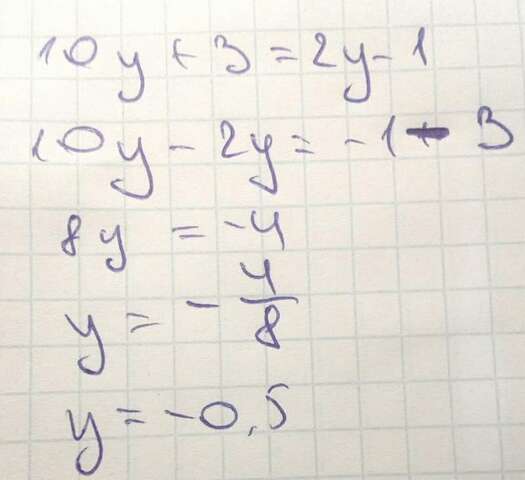 10y + 3 = 2y - 1
10y - 2y = -1 - 3
8y = -4
y = - 4/8
y = -0,5